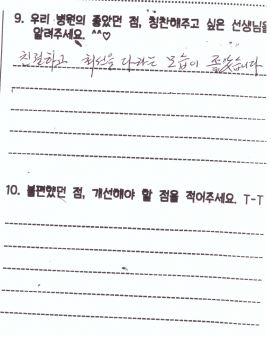 9. 우리 병원의 좋았던 점, 칭찬해주고 싶은 선생님을
알려주세요. ^^♡
친절하고 최선을 다하는 모습이 좋았습니다
10. 불편했던 점, 개선해야 할 점을 적어주세요. T-T